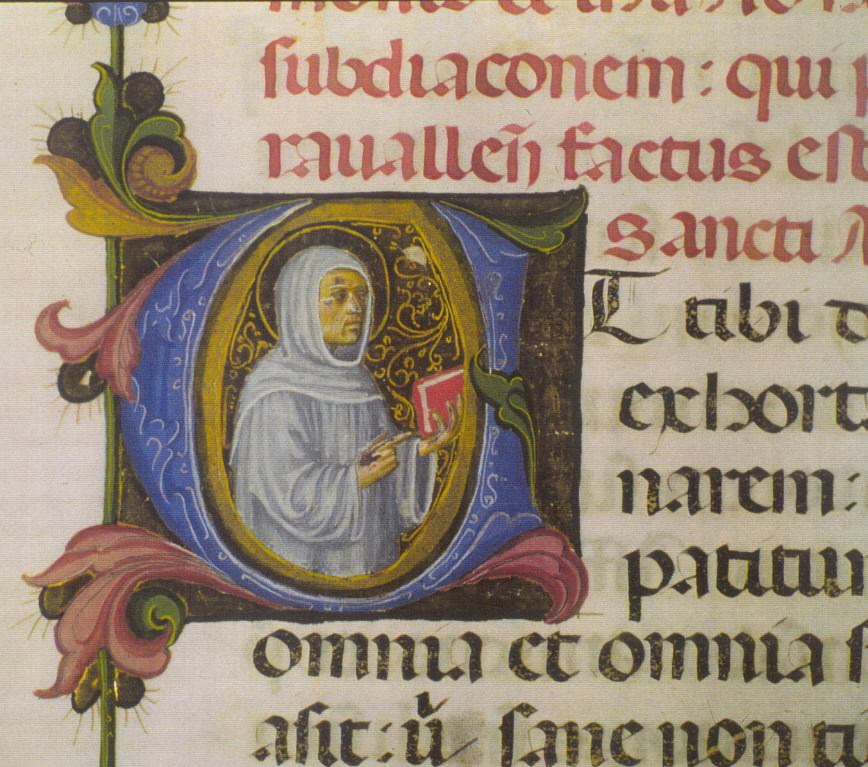 ſubdiaconem : qui
rauallen̄ factus eſt
Sancti
UT tibi
exhort
narem :
patitur
omnia et omnia
aſit : ū ſane non